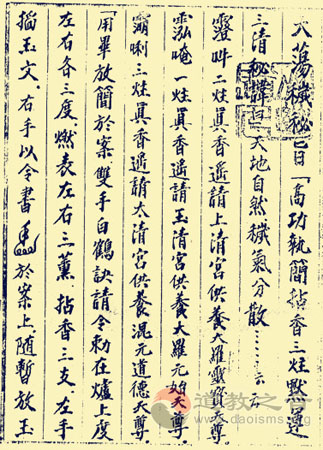 大蕩穢秘旨曰「高功執簡拈香三炷默運
三清秘諱曰「天地自然穢氣分散……云云
叫 二炷真香遙請上清宮供養大羅靈寶天尊。
唵 一炷真香遙請玉清宮供養大羅元始天尊。
唎 三炷真香遙請太清宮供養混元道德天尊
「用畢放簡於案雙手白鶴訣請令勅在爐上度
左右各三度。燃表左右三薰。拈香三支。左手
搯玉文。右手以令書 於案上。隨暫放玉
道教之音
www.daoisms.org